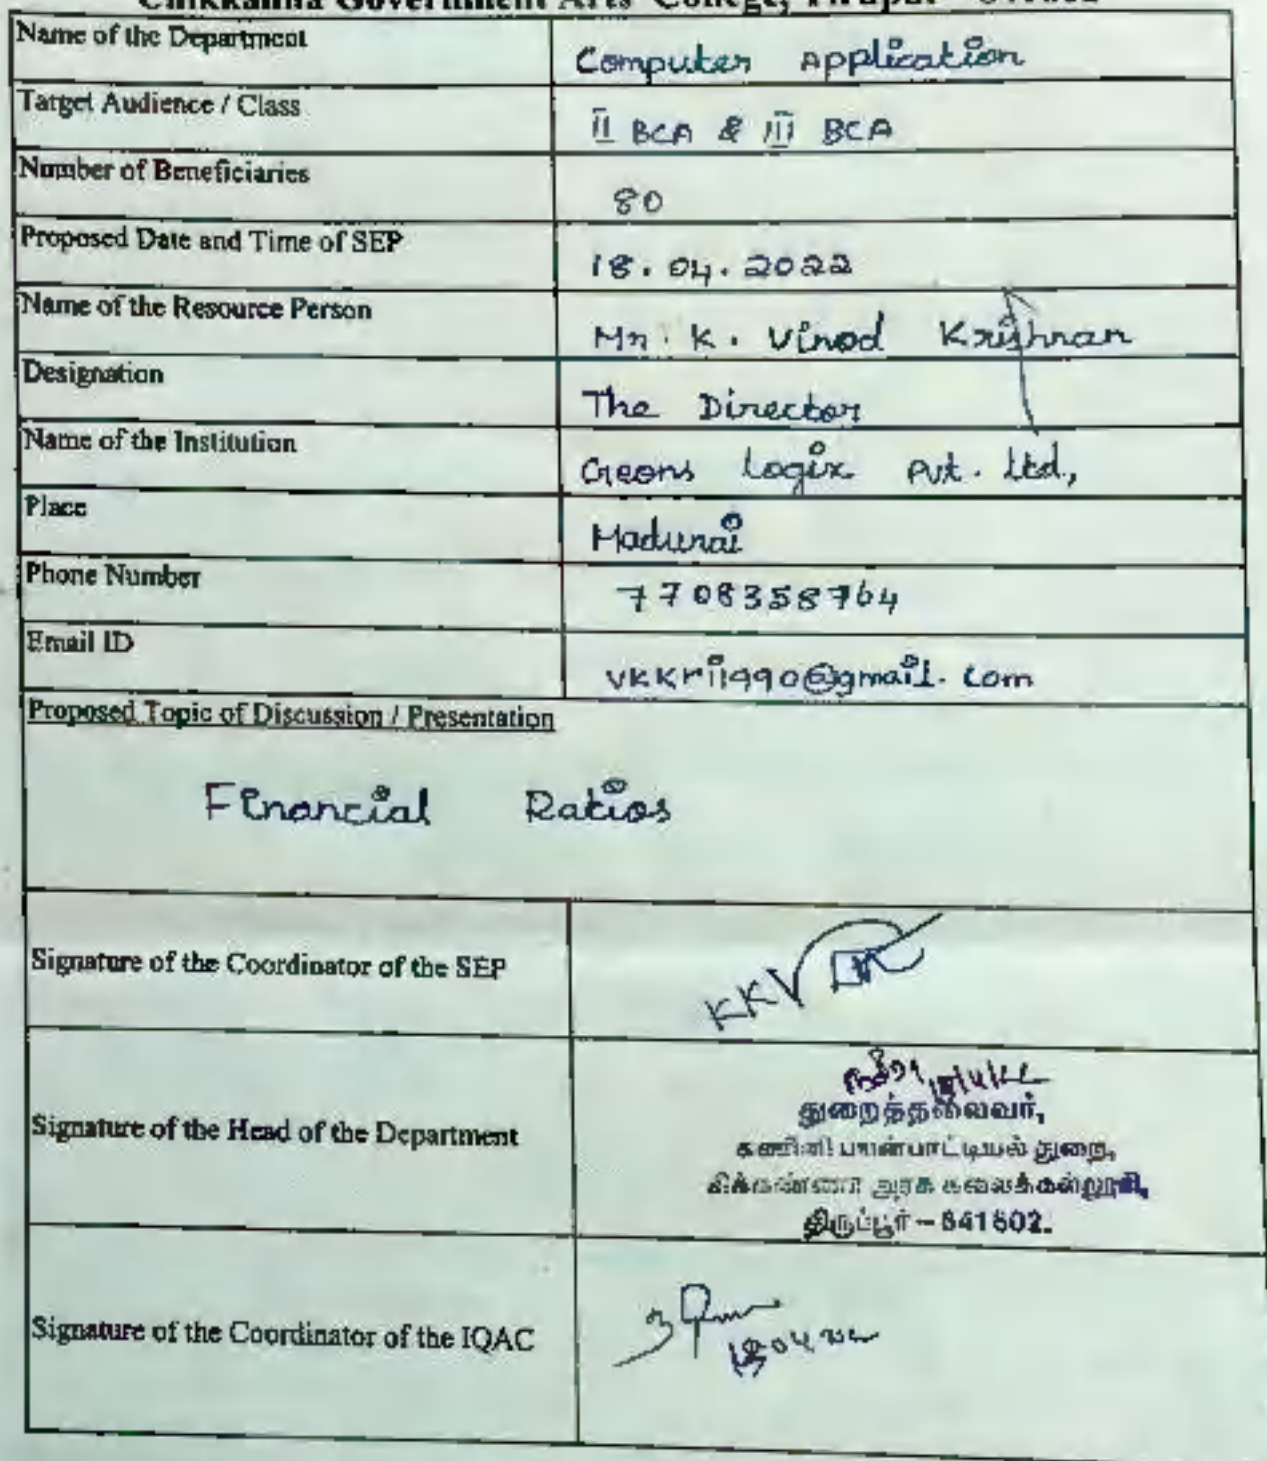 Chikkanna Government Arts College, Tirupur - 641602
Name of the Department
Computer Application
Target Audience / Class
II BCA & III BCA
Number of Beneficiaries
80
Proposed Date and Time of SEP
18.04.2022
Name of the Resource Person
Mr. K. Vinod Krishnan
Designation
The Director
Name of the Institution
Geons Logix Pvt. Ltd.,
Place
Madurai
Phone Number
7708358764
Email ID
vkkrii990@gmail.com
Proposed Topic of Discussion / Presentation
Financial Ratios
Signature of the Coordinator of the SEP
KKV
Signature of the Head of the Department
துறைத்தலைவர்,
கணினி பயன்பாட்டியல் துறை,
சிக்கண்ணா அரசு கலைக்கல்லூரி,
திருப்பூர் – 641602.
Signature of the Coordinator of the IQAC